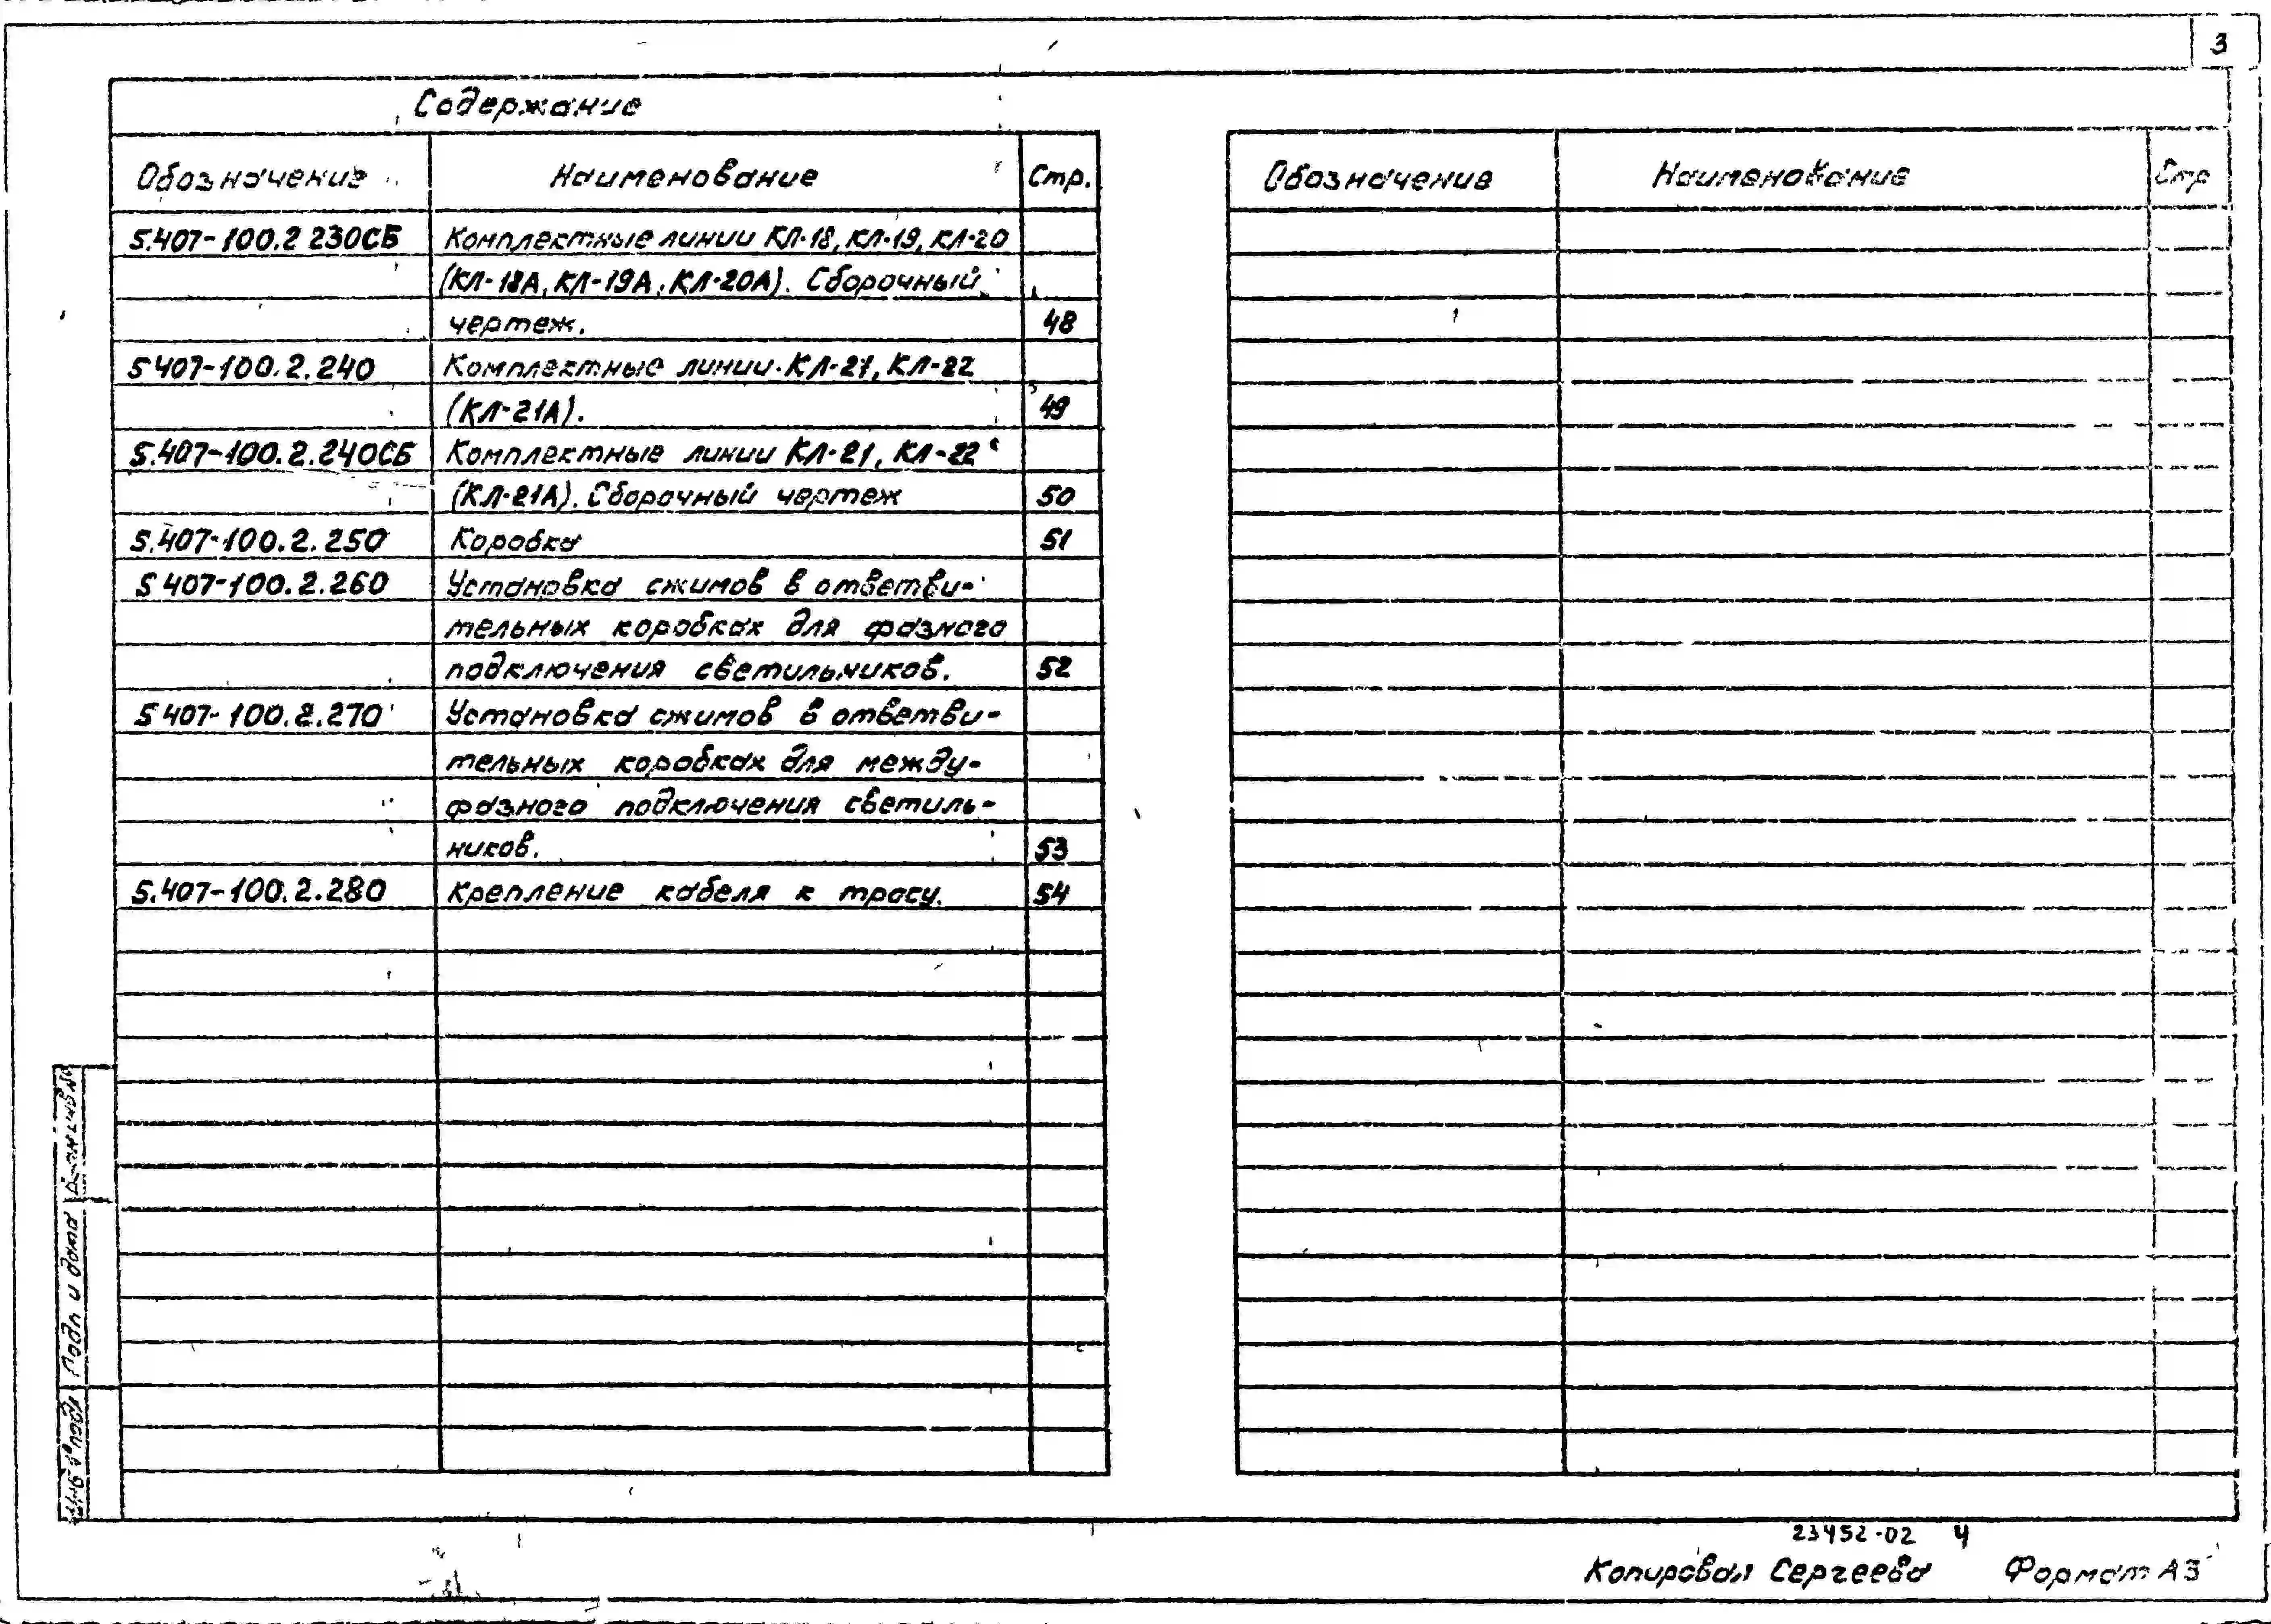 3
Содержание
Обозначение Наименование Стр.
5.407-100.2 230СБ Комплектные линии КЛ-18, КЛ-19, КЛ-20
(КЛ-18А, КЛ-19А, КЛ-20А). Сборочный
чертеж. 48
5 407-100.2.240 Комплектные линии КЛ-21, КЛ-22
(КЛ-21А). 49
5.407-100.2.240СБ Комплектные линии КЛ-21, КЛ-22
(КЛ-21А). Сборочный чертеж 50
5.407-100.2.250 Коробка 51
5 407-100.2.260 Установка сжимов в ответви-
тельных коробках для фазного
подключения светильников. 52
5 407-100.2.270 Установка сжимов в ответви-
тельных коробках для между-
фазного подключения светиль-
ников. 53
5.407-100.2.280 Крепление кабеля к тросу. 54
Обозначение Наименование Стр
Подп и дата
Инв № подл
23452-02 4
Копировал Сергеева Формат А3